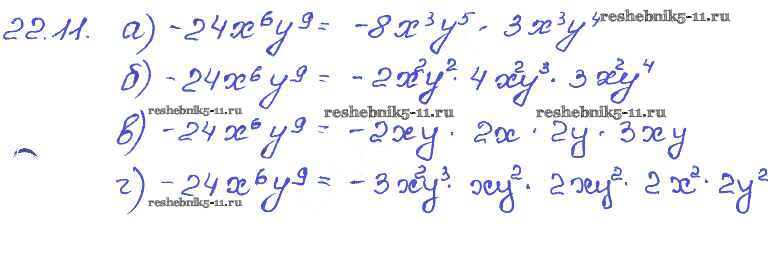 22.11. а) -24x⁶y⁹ = -8x³y⁵ · 3x³y⁴ reshebnik5-11.ru
б) -24x⁶y⁹ = -2x²y² · 4x²y³ · 3x²y⁴
reshebnik5-11.ru reshebnik5-11.ru reshebnik5-11.ru
в) -24x⁶y⁹ = -2xy · 2x · 2y · 3xy
г) -24x⁶y⁹ = -3x²y³ · xy² · 2xy² · 2x² · 2y²
reshebnik5-11.ru